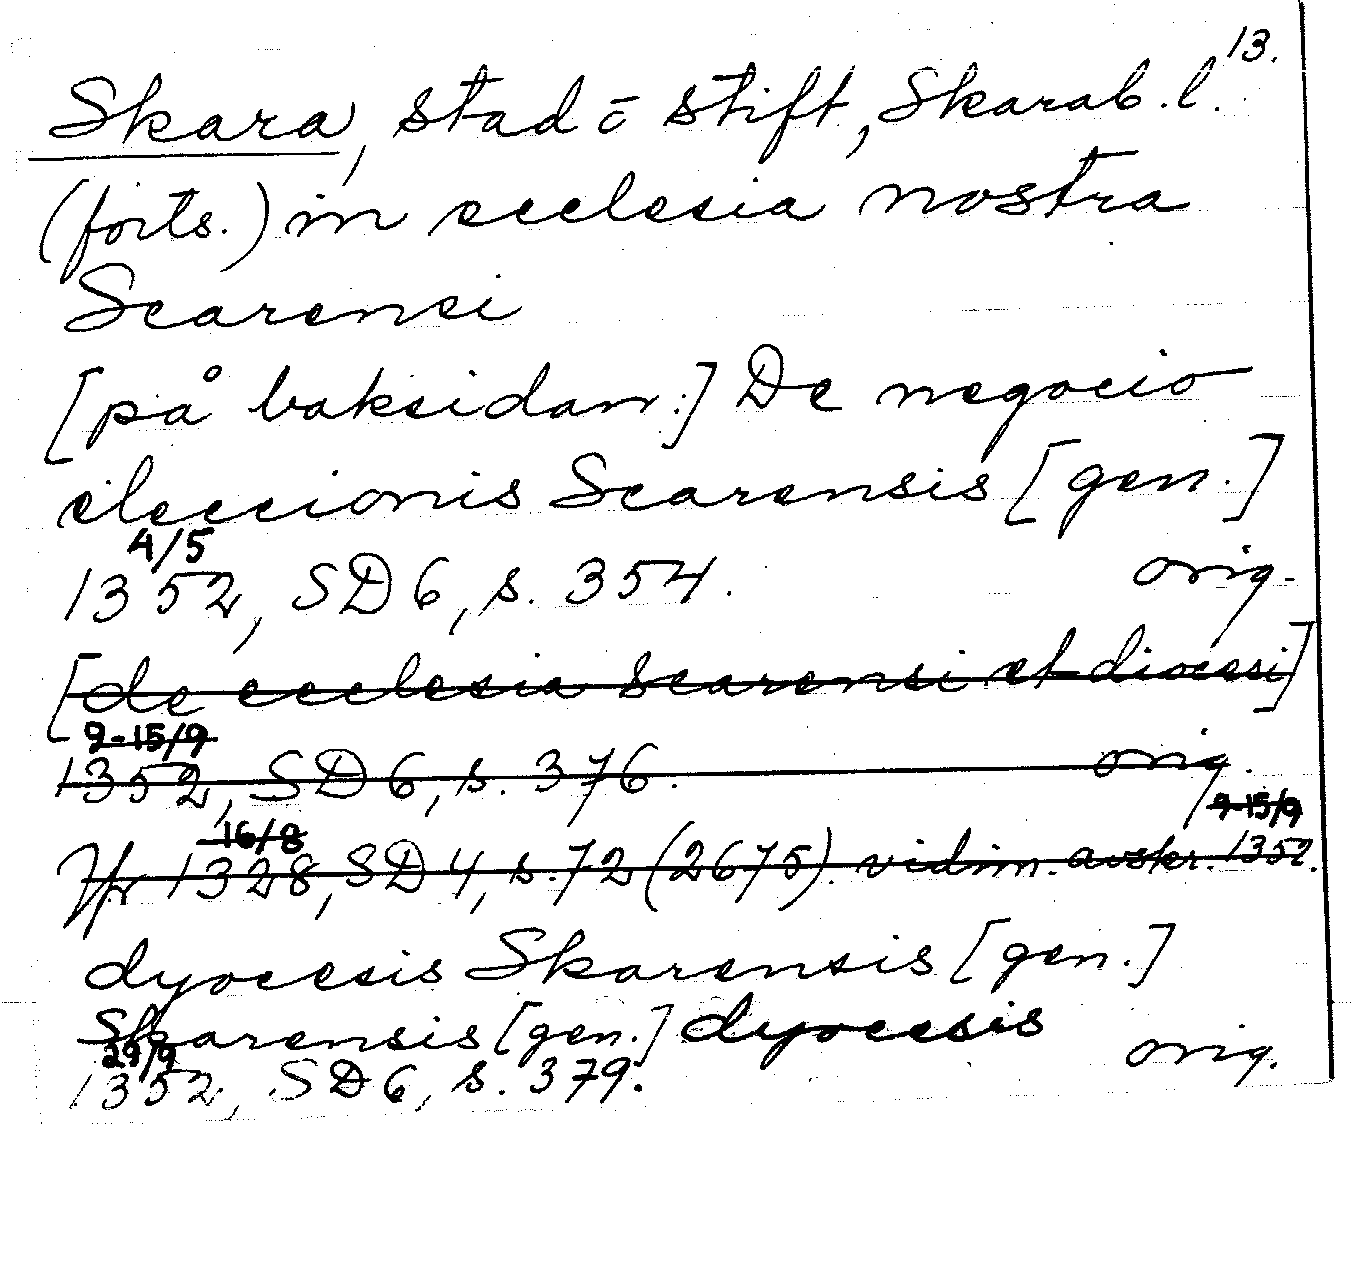 13.
Skara, stad o stift, Skarab.l.
(forts.) in ecclesia nostra
Scarensi
[på baksidan:] De negocio
eleccionis Scarensis [gen.]
4/5
1352, SD 6, s. 354. orig.
[de ecclesia Scarensi et diocesi]
9-15/9
1352, SD 6, s. 376. orig.
16/8 9-15/9
Jfr 1328, SD 4, s. 72 (2675). vidim. avskr. 1352.
dyocesis Skarensis [gen.]
Skarensis [gen.] dyocesis
29/9
1352, SD 6, s. 379. orig.